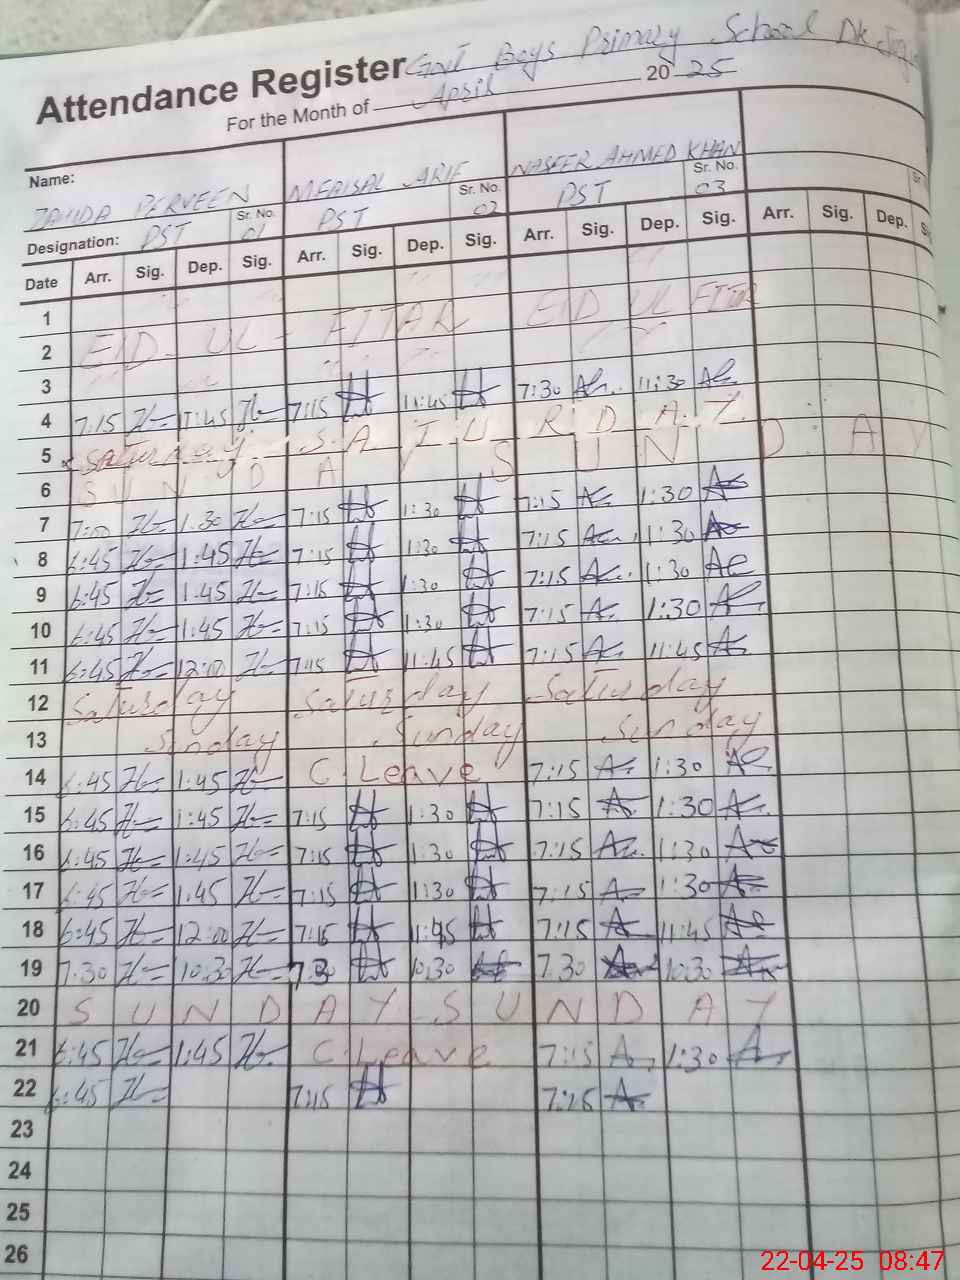 Attendance Register Govt Boys Primary School
For the Month of April 2025
Name: ZAHIDA PERVEEN MFAISAL ARIF NASEER AHMED KHAN
Sr. No. 01 Sr. No. 02 Sr. No. 03
Designation: PST PST PST
Date Arr. Sig. Dep. Sig. Arr. Sig. Dep. Sig. Arr. Sig. Dep. Sig. Arr. Sig. Dep.
1
EID UL - FITAR EID UL FITAR
2
3
4 7:15 11:45 7:15 11:45 7:30 11:30
5 Saturday S A T U R D A Y
6 S U N D A Y S U N D A Y
7 7:00 1:30 7:15 1:30 7:15 1:30
8 6:45 1:45 7:15 1:30 7:15 1:30
9 6:45 1:45 7:15 1:30 7:15 1:30
10 6:45 1:45 7:15 1:30 7:15 1:30
11 6:45 12:00 7:15 11:45 7:15 11:45
12 Saturday Saturday Saturday
13 Sunday Sunday Sunday
14 6:45 1:45 C. Leave 7:15 1:30
15 6:45 1:45 7:15 1:30 7:15 1:30
16 6:45 1:45 7:15 1:30 7:15 1:30
17 6:45 1:45 7:15 1:30 7:15 1:30
18 6:45 12:00 7:15 11:45 7:15 11:45
19 7:30 10:30 7:30 10:30 7:30 10:30
20 S U N D A Y S U N D A Y
21 6:45 1:45 C. Leave 7:15 1:30
22 6:45 7:15 7:15
23
24
25
26
22-04-25 08:47